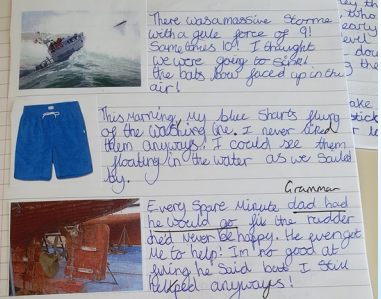 There was a massive storme
with a gale force of 9!
Sometimes 10! I thought
we were going to sink!
the bats bow faced up in the
air!
This Marning, My blue Sharts flung
of the washing line. I never liked
them anyways. I could see them
floating in the water as we Sailed
by.
Grammar
Every Spare Minute dad had
he would go fix the rudder
hed Never be happy. He even got
Me to help! Im no good at
fixing he Said but I Still
helped anyways!